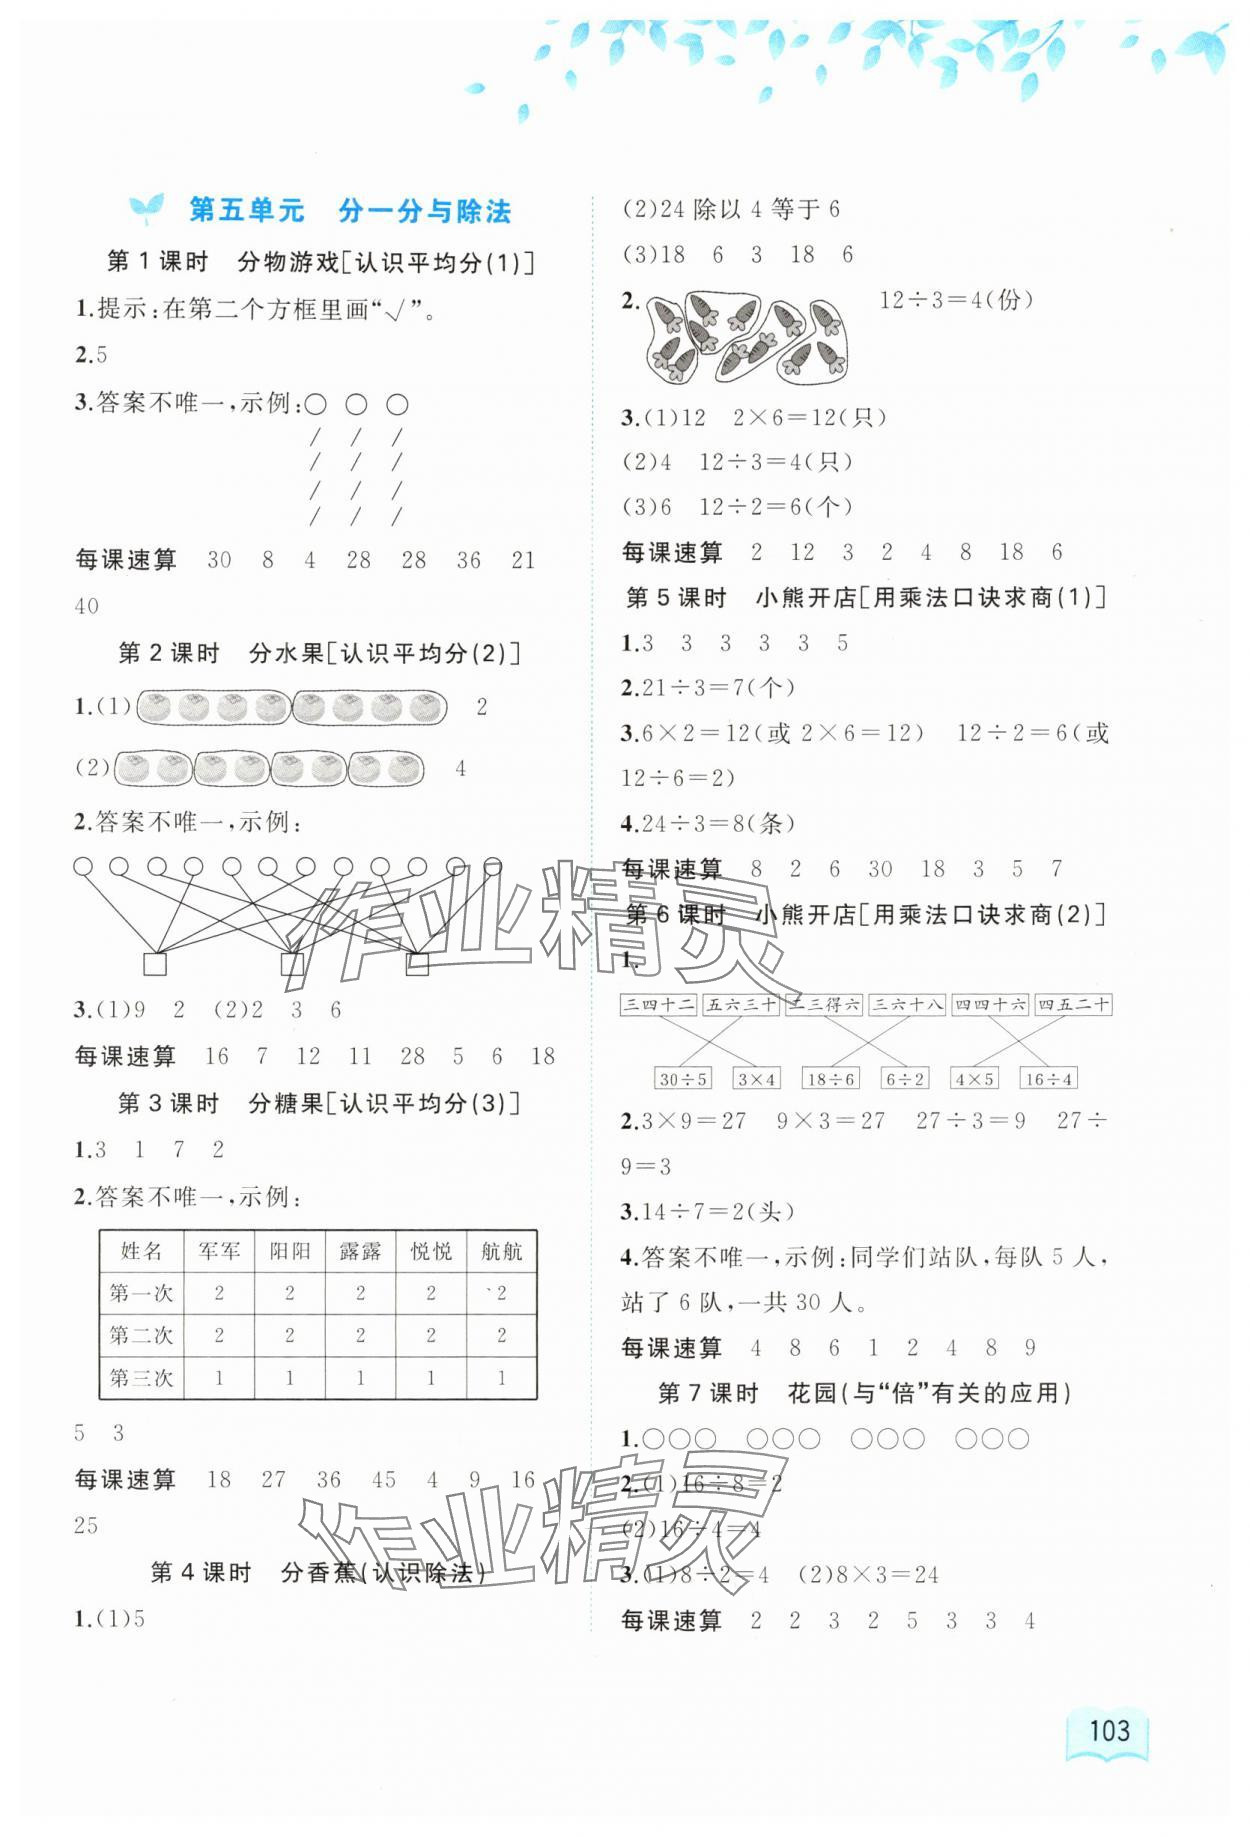 第五单元 分一分与除法
第 1 课时 分物游戏[认识平均分(1)]
1.提示:在第二个方框里画“√”。
2.5
3.答案不唯一,示例:○ ○ ○
/ / /
/ / /
/ / /
/ / /
每课速算 30 8 4 28 28 36 21
40
第 2 课时 分水果[认识平均分(2)]
1.(1) 2
(2) 4
2.答案不唯一,示例:
3.(1)9 2 (2)2 3 6
每课速算 16 7 12 11 28 5 6 18
第 3 课时 分糖果[认识平均分(3)]
1.3 1 7 2
2.答案不唯一,示例:
姓名 军军 阳阳 露露 悦悦 航航
第一次 2 2 2 2 2
第二次 2 2 2 2 2
第三次 1 1 1 1 1
5 3
每课速算 18 27 36 45 4 9 16
25
第 4 课时 分香蕉(认识除法)
1.(1)5
(2)24 除以 4 等于 6
(3)18 6 3 18 6
2. 12÷3=4(份)
3.(1)12 2×6=12(只)
(2)4 12÷3=4(只)
(3)6 12÷2=6(个)
每课速算 2 12 3 2 4 8 18 6
第 5 课时 小熊开店[用乘法口诀求商(1)]
1.3 3 3 3 3 5
2.21÷3=7(个)
3.6×2=12(或 2×6=12) 12÷2=6(或
12÷6=2)
4.24÷3=8(条)
每课速算 8 2 6 30 18 3 5 7
第 6 课时 小熊开店[用乘法口诀求商(2)]
1.
三四十二 五六三十 二三得六 三六十八 四四十六 四五二十
30÷5 3×4 18÷6 6÷2 4×5 16÷4
2.3×9=27 9×3=27 27÷3=9 27÷
9=3
3.14÷7=2(头)
4.答案不唯一,示例:同学们站队,每队 5 人,
站了 6 队,一共 30 人。
每课速算 4 8 6 1 2 4 8 9
第 7 课时 花园(与“倍”有关的应用)
1.○○○ ○○○ ○○○ ○○○
2.(1)16÷8=2
(2)16÷4=4
3.(1)8÷2=4 (2)8×3=24
每课速算 2 2 3 2 5 3 3 4
作业精灵
作业精灵
103